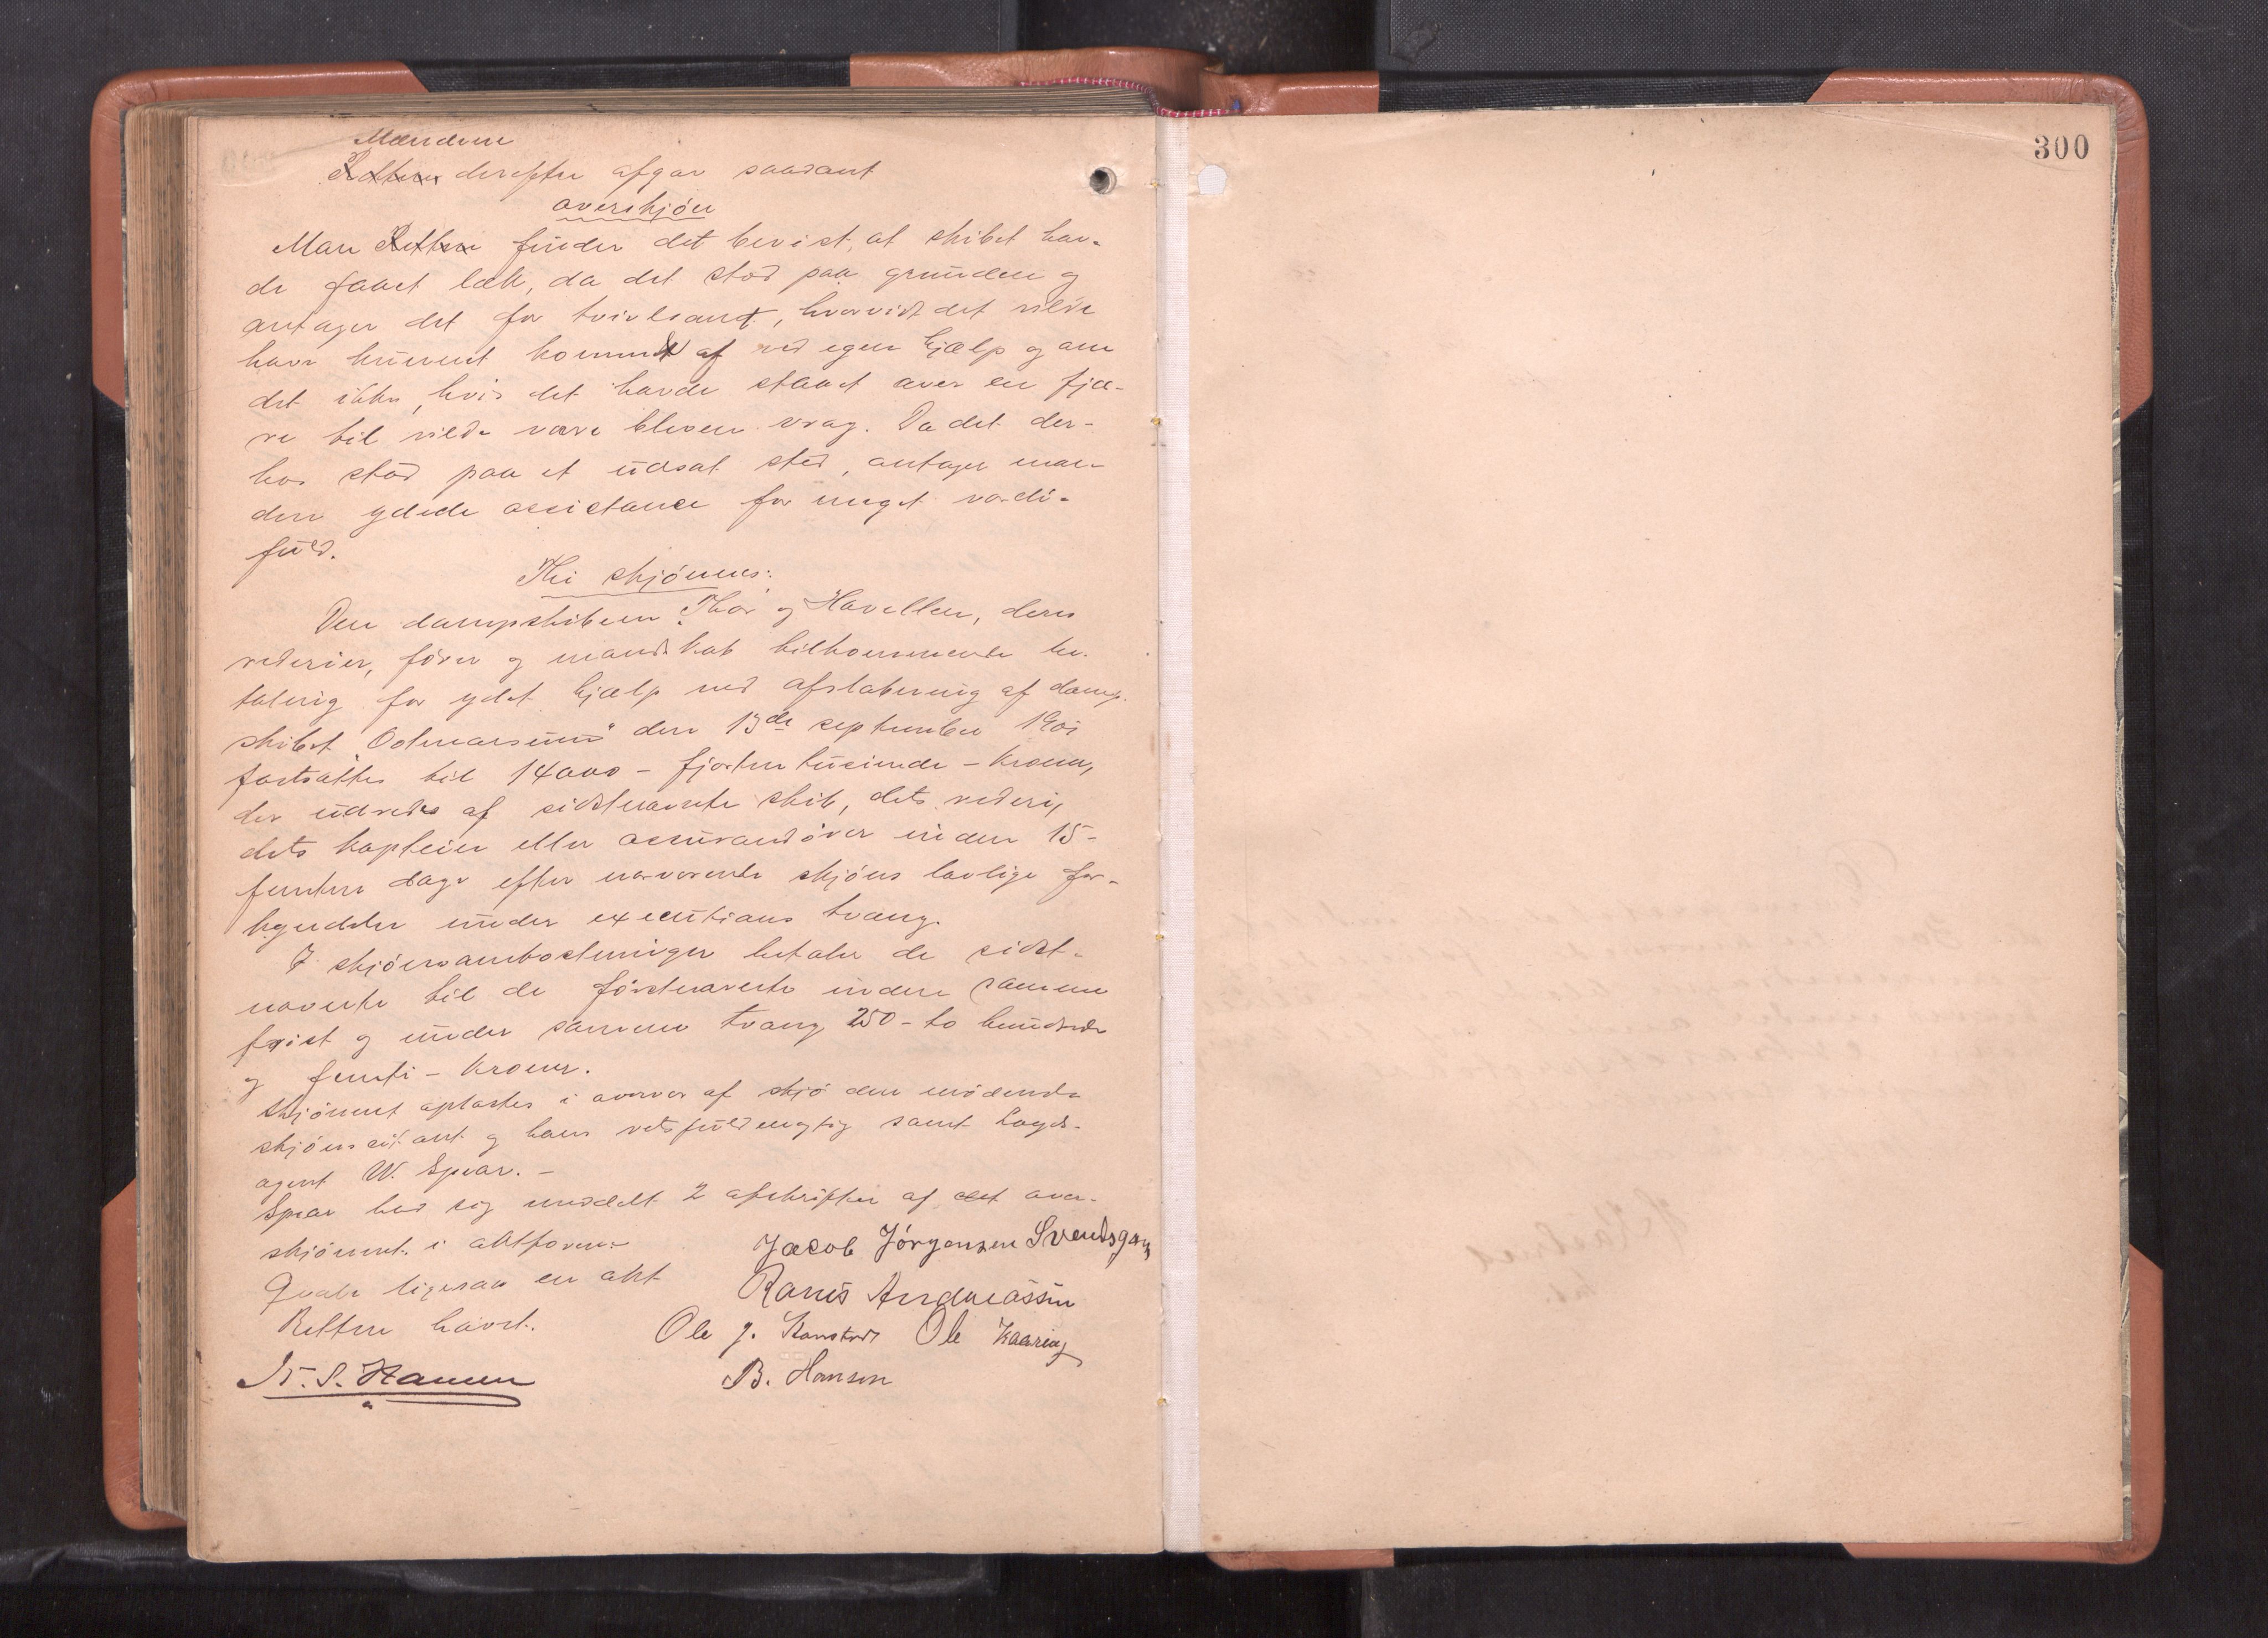 Mændene
Retten derefter afgav saadant
overskjön
Man Retten finder det bevist, at skibet hav-
de faaet læk, da det stod paa grunden og
antager det for tvivlsomt, hvorvidt det vilde
have kunnet kommet af ved egen hjælp og om
det ikke, hvis det havde staaet over en fjæ-
re til vilde være bleven vrag. Da det der-
hos stod paa et udsat sted, antager man
den ydede assistance for meget værdi-
fuld.
Thi skjönnes:
Den dampskibene "Thor og Havellen, deres
rederier, förer og mandskab tilkommende be-
taling for ydet hjælp ved afslæbning af damp-
skibet "Ootmarsum" den 13de september 1901
fastsættes til 14000 - fjorten tusinde - kroner,
der udredes af sidstnævnte skib, dets rederi,
dets kaptein eller assurandörer inden 15-
femten dage efter nærværende skjöns lovlige for-
kyndelse under executions tvang.
I skjönsomkostninger betaler de sidst-
nævnte til de förstnævnte inden samme
frist og under samme tvang 250 - to hundrede
og femti - kroner.
Skjönnet oplæstes i overvær af skjö den mödende
skjönscitant og hans retsfuldmægtig samt Loyds-
agent W. Spear. -
Spear bad sig meddelt 2 afskrifter af det over-
skjönnet i aktform.
Qvale ligesaa en akt
Retten hævet.
Jacob Jörgensen Svendsgam
Ranus Andreassen
Ole J. Kanstad Ole Kaaring
K. S. Hansen
B. Hansen
300